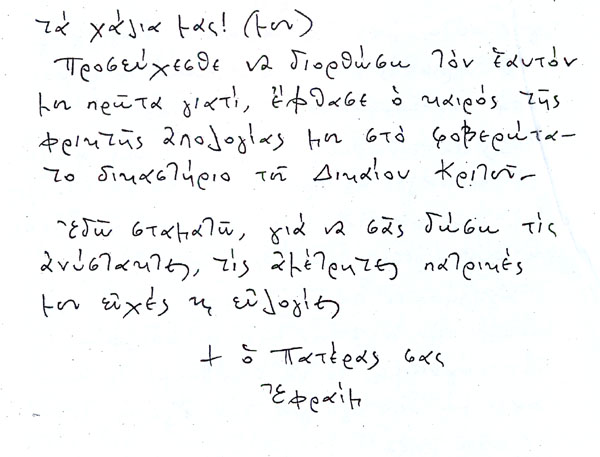 τά χάλια μας! (μου)
Προσεύχεσθε νά διορθώσω τόν ἑαυτόν
μου πρῶτα γιατί, ἔφθασε ὁ καιρός τῆς
φρικτῆς ἀπολογίας μου στό φοβερώτα-
το δικαστήριο τοῦ Δικαίου Κριτοῦ-
Ἐδῶ σταματῶ, γιά νά σᾶς δώσω τίς
ἀνύστακτες, τίς ἀμέτρητες πατρικές
μου εὐχές κ εὐλογίες
+ ὁ Πατέρας σας
Ἐφραίμ